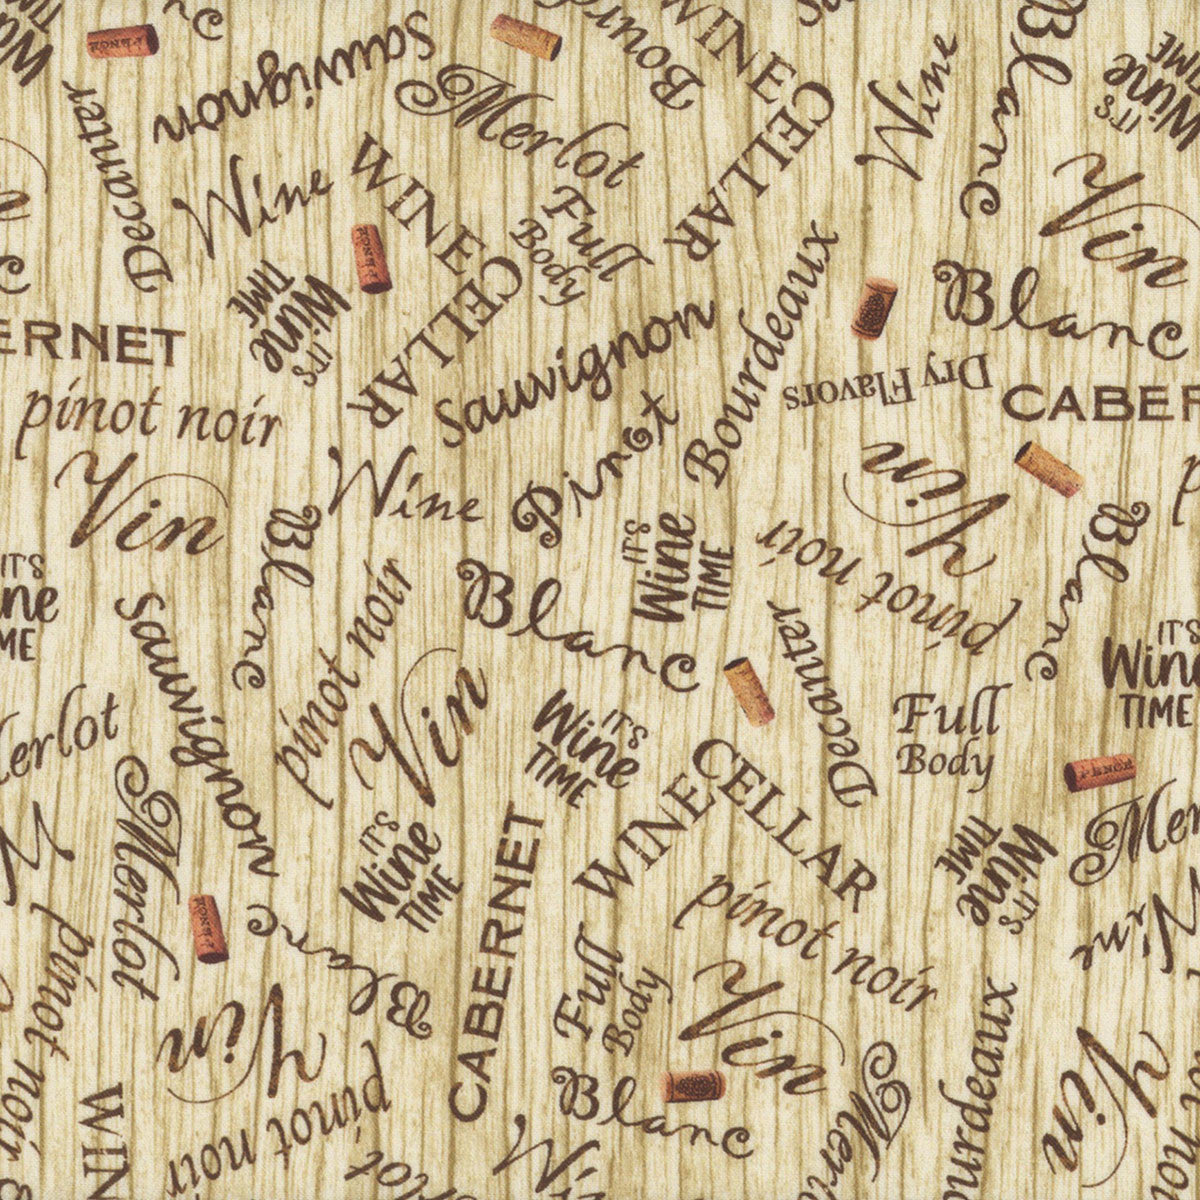 Sauvignon
Bourdeaux
WINE
CELLAR
Wine
Blanc
IT'S
Wine
TIME
Decanter
Merlot
Wine
WINE
CELLAR
Full
Body
Vin
IT'S
Wine
TIME
Sauvignon
Bourdeaux
Blanc
Dry Flavors
CABER
ERNET
pinot noir
Pinot
Vin
Wine
Vin
Blanc
IT'S
Wine
TIME
pinot noir
Blanc
IT'S
ne
ME
Sauvignon
pinot noir
Blanc
Decanter
IT'S
Wine
TIME
Vin
IT'S
Wine
TIME
Full
Body
erlot
Merlot
WINE
CELLAR
IT'S
Wine
TIME
IT'S
Wine
TIME
Mer
CABERNET
pinot noir
Wine
Blanc
Full
Body
pinot noir
Vin
Vin
ourdeaux
Vin
pinot noir
Blanc
Mer
WIN